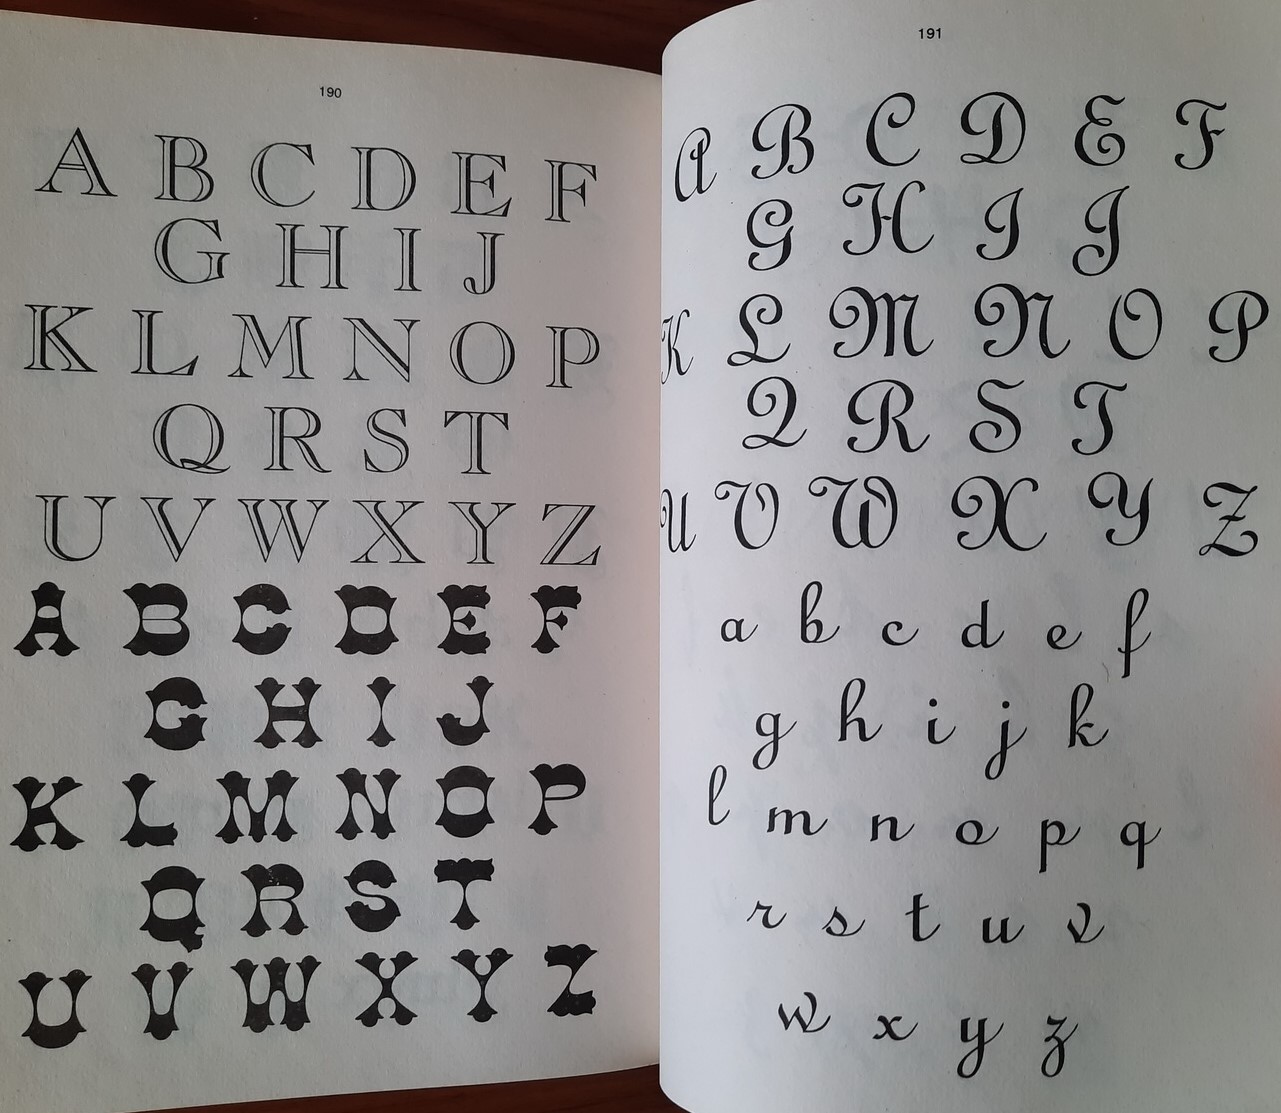 190
A B C D E F
G H I J
K L M N O P
Q R S T
U V W X Y Z
A B C D E F
G H I J
K L M N O P
Q R S T
U V W X Y Z
191
A B C D E F
G H I J
K L M N O P
Q R S T
U V W X Y Z
a b c d e f
g h i j k
l m n o p q
r s t u v
w x y z